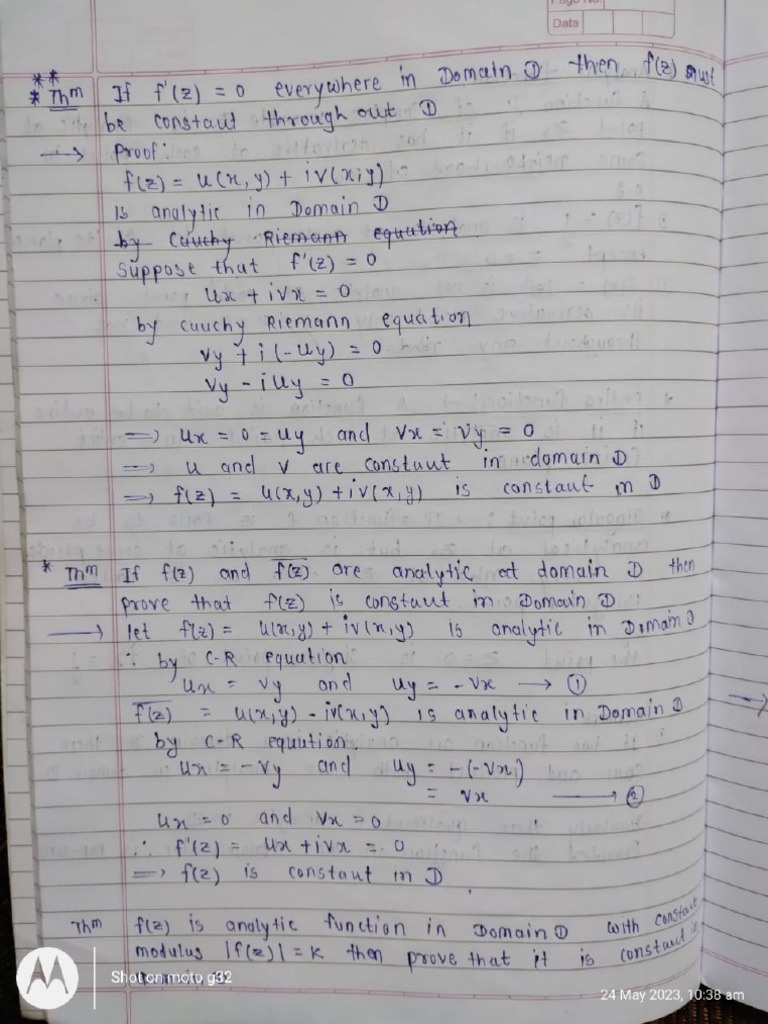 Page No.
Date
** * Thm If f'(z) = 0 everywhere in Domain D then f(z) must
be constaut through out D
→ Proof:
f(z) = u(x,y) + iv(x,y)
is analytic in Domain D
by Cauchy Riemann equation
Suppose that f'(z) = 0
ux + ivx = 0
by Cauchy Riemann equation
vy + i(-uy) = 0
vy - iuy = 0
=> ux = 0 = uy and vx = vy = 0
=> u and v are constaut in domain D
=> f(z) = u(x,y) + iv(x,y) is constaut in D
* Thm If f(z) and \overline{f(z)} are analytic at domain D then
prove that f(z) is constaut in Domain D
→ let f(z) = u(x,y) + iv(x,y) is analytic in Domain D
∴ by C-R equation
ux = vy and uy = -vx → ①
\overline{f(z)} = u(x,y) - iv(x,y) is analytic in Domain D
by C-R equution.
ux = -vy and uy = -(-vx)
= vx → ②
ux = 0 and vx = 0
∴ f'(z) = ux + ivx = 0
=> f(z) is constaut in D
Thm f(z) is analytic function in Domain D with constaut
modulus |f(z)| = k then prove that it is constaut in
Shot on moto g32
24 May 2023, 10:38 am